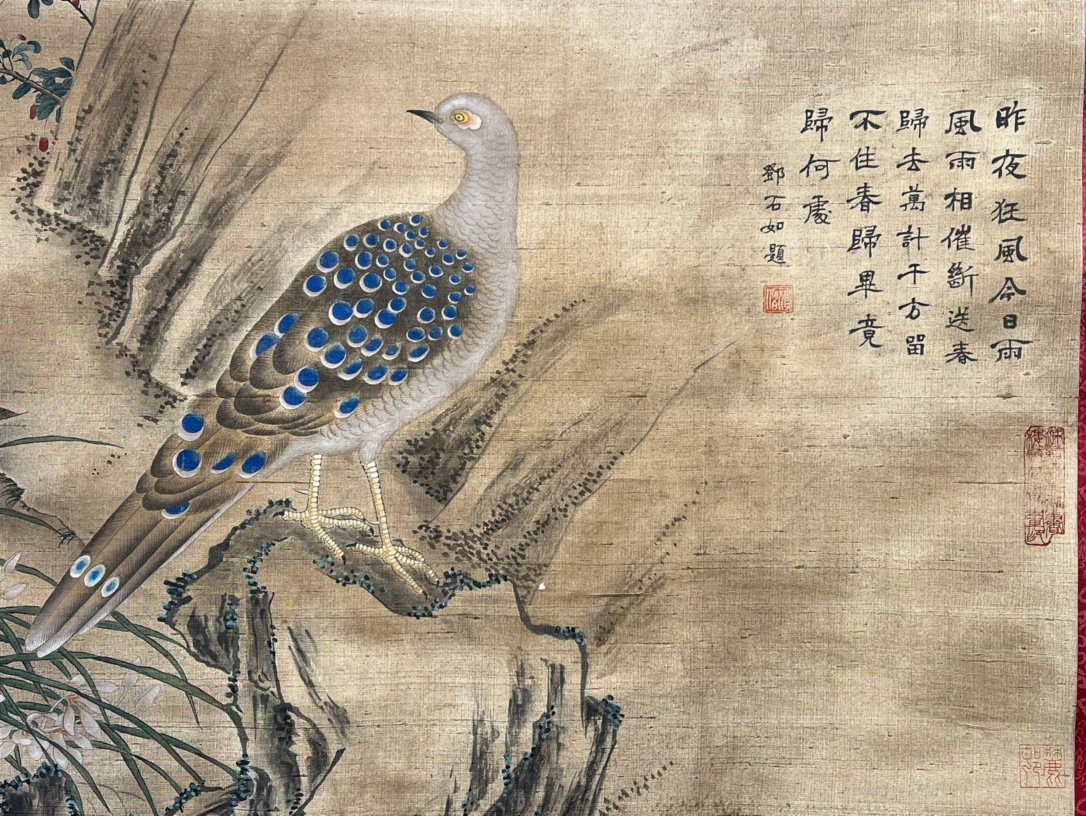 昨夜狂風今日雨
風雨相催斷送春
歸去萬計千方留
不住春歸畢竟
歸何處
鄧石如題